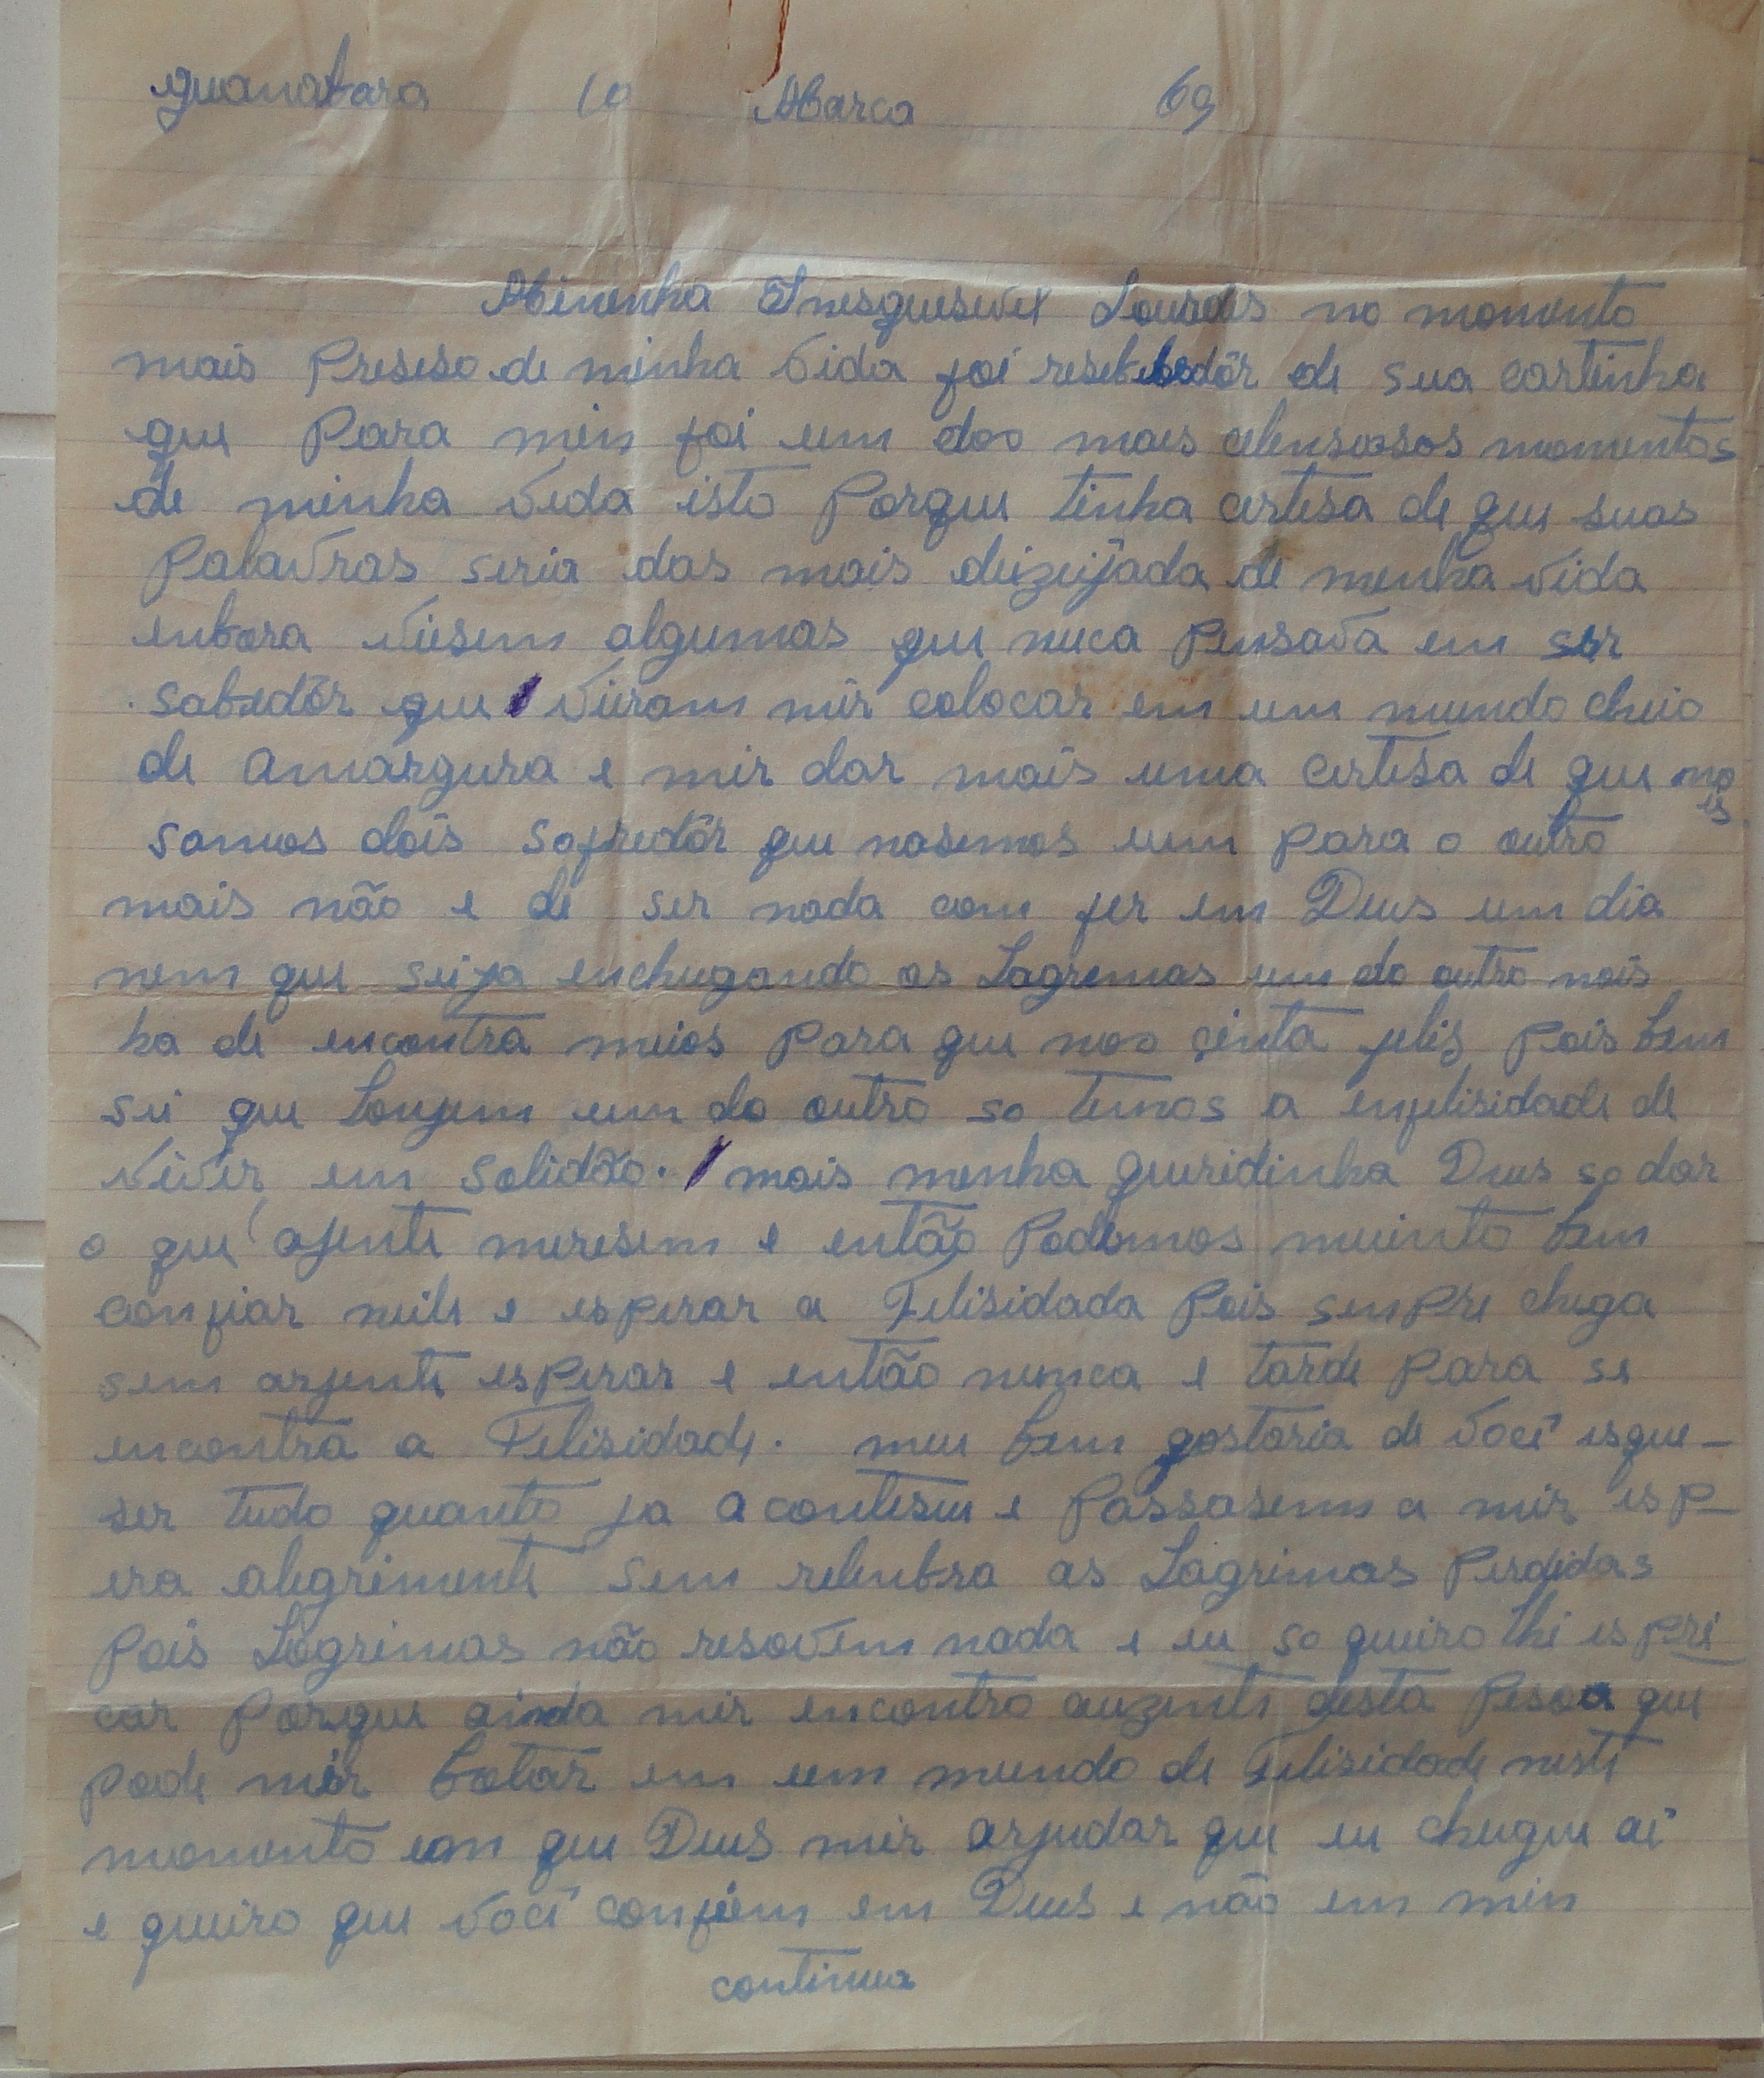 guanabara 10 Março 69
Minenha Inesquesivel Lourdes no momento
mais Preseso de minha vida foi resebebedôr de sua cartinha
que Para min foi um dos mais momentos
de minha vida isto Porque tinha certesa de que suas
Palavras seria das mais deizeijada de menha vida
enbora viesem algumas que nuca Pensava em ser
sabedôr que vieram mir colocar em um mundo cheio
de amargura e mir dar mais uma certesa de que nois
somos dois sofredôr que nasemos um para o outro
mais não e de ser nada com fer em Deus um dia
nem que seija enchugando as Lagremas um do outro nois
ha de encontra meios Para que nos cinta felis Pois bem
sei que Longem um do outro so temos a enfelisidade de
viver em solidão. mais menha queridinha Deus so dar
o que ajente meresem e então Podemos muinto bem
confiar neile e esperar a Felisidada Pois senpre chega
sem arjente esperar e então nunca e tarde Para se
encontra a Felisidade. meu bem gostaria de você esque-
ser tudo quanto ja aconteseu e Passasem a mir esp-
era alegremente sem relenbra as Lagrimas Perdidas
Pois Lagrimas não resovem nada e eu so queiro lhe espri
car Porque ainda mir encontro auzente desta Pesoa que
Pode mir botar em um mundo de Felisidade neste
momento em que Deus mir arjudar que eu chegue aí
e queiro que você confiem em Deus e não em min
continua